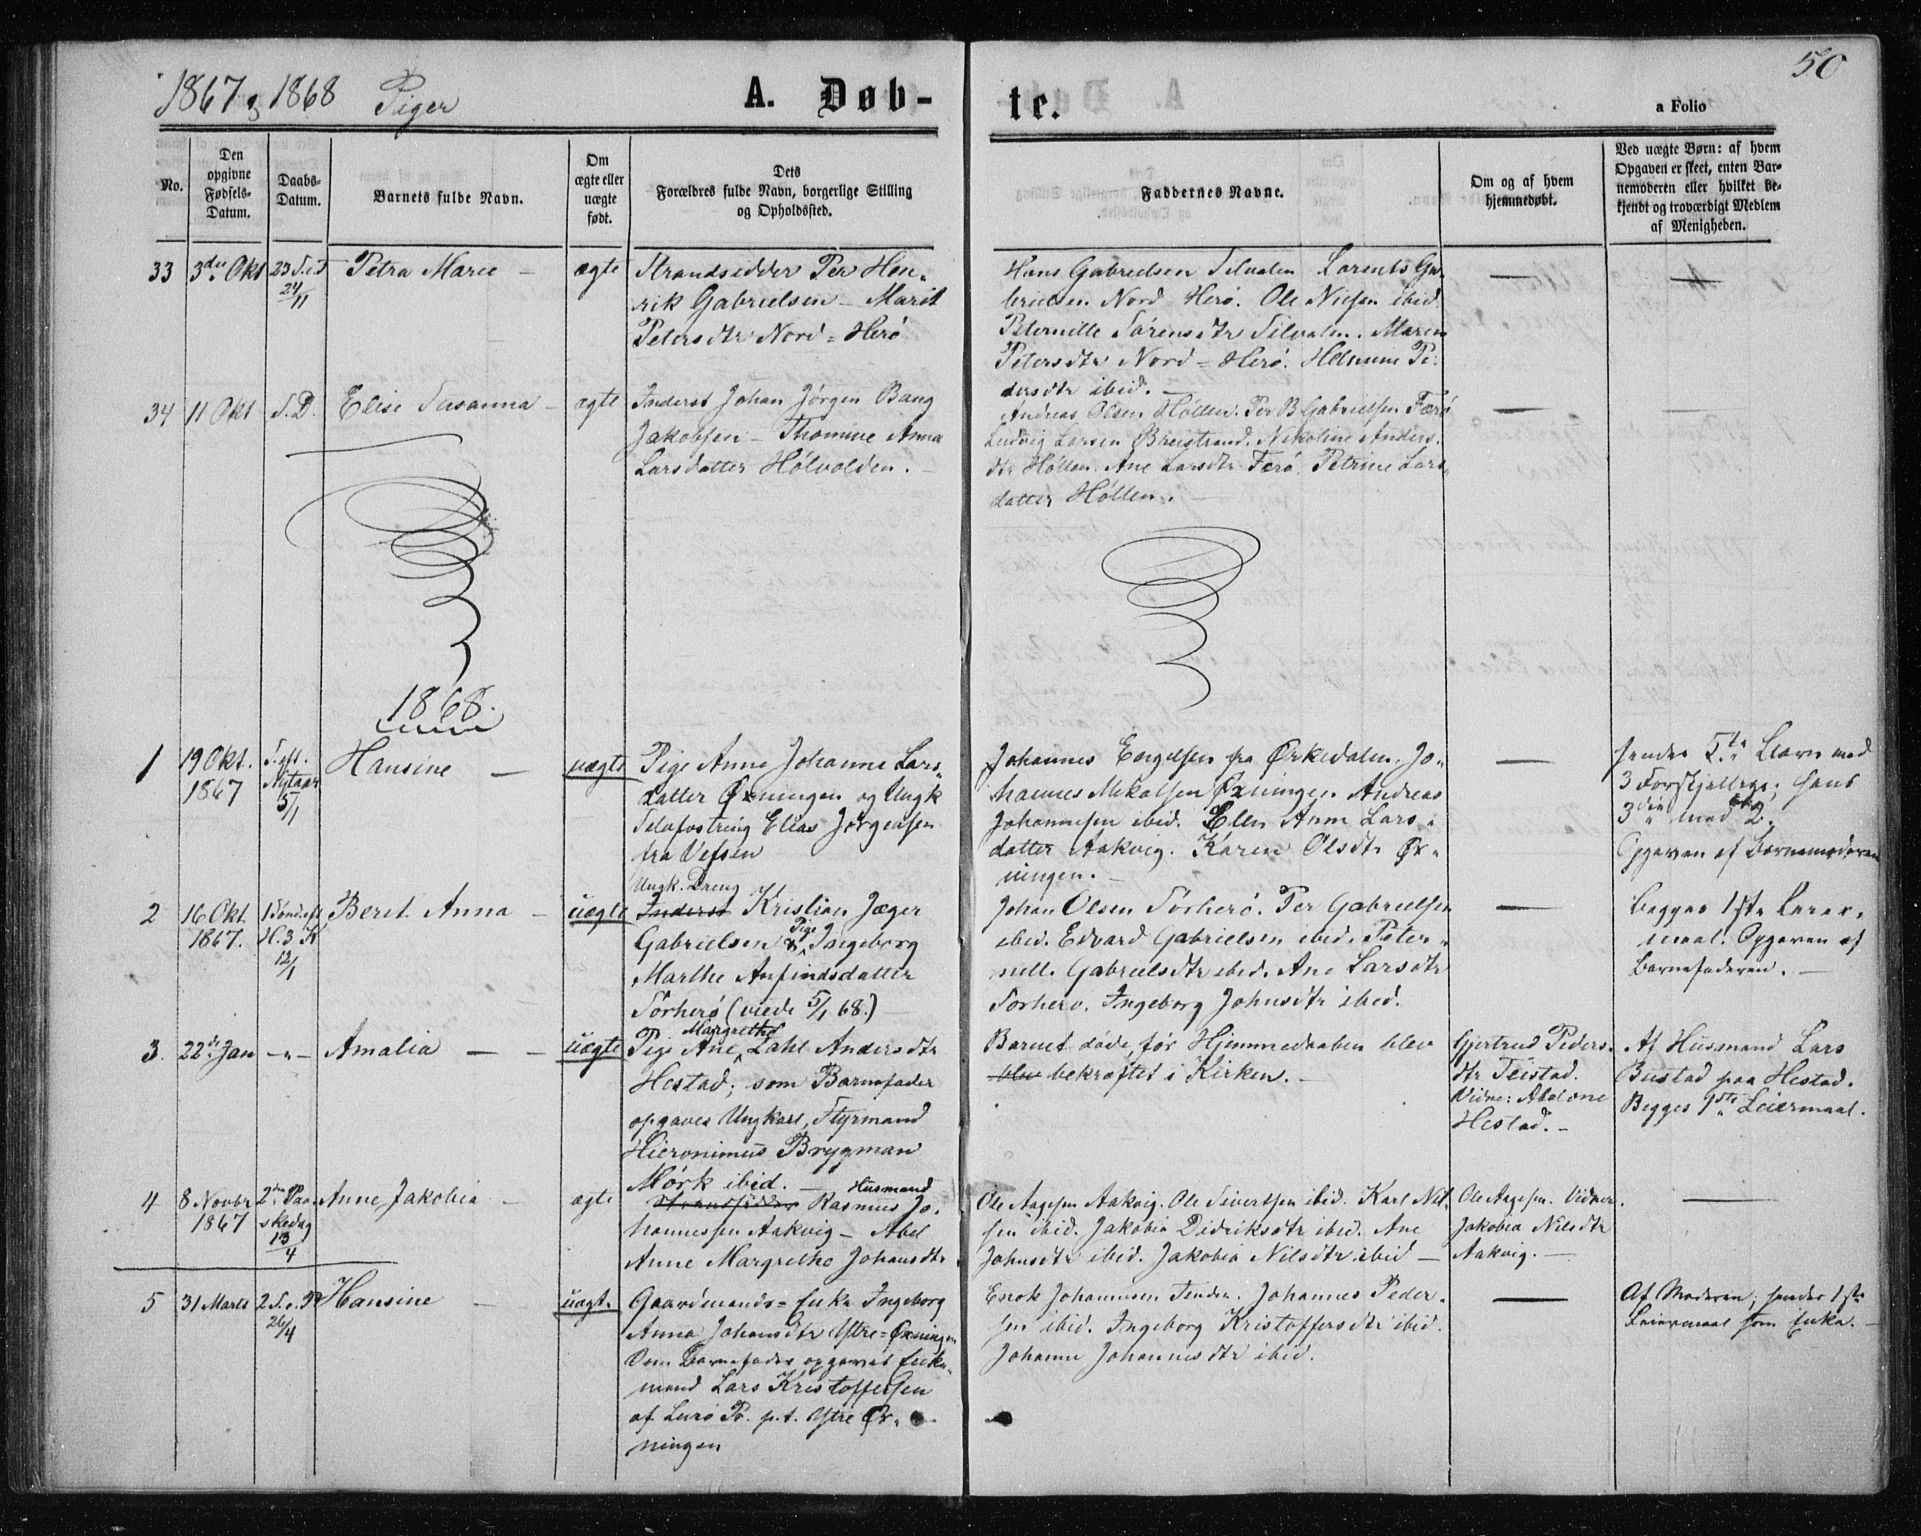 50
1867 og 1868 Piger
A. Døb-
te.
a Folio
No.
Den
opgivne
Fødsels-
Datum.
Daabs-
Datum.
Barnets fulde Navn.
Om
ægte eller
uægte
født.
Dets
Forældres fulde Navn, borgerlige Stilling
og Opholdssted.
Faddernes Navne.
Om og af hvem
hjemmedøbt.
Ved uægte Børn: af hvem
Opgaven er skeet, enten Bar-
nemoderen eller hvilket be-
kjendt og troværdigt Medlem
af Menigheden.
33 3die Okt 23 S.e.T
24/11
Petra Marie — ægte
Strandsidder Per Hen-
rik Gabrielsen – Marit
Petersdtr Nord-Herø
Hans Gabrielsen Silvalen Lorents Ga-
brielsen Nord-Herø. Ole Nilsen ibid
Peternille Sørensdtr Silvalen. Maren
Petersdtr Nord-Herø. Helmine Pe-
dersdtr ibid. —
— —
34 11 Okt S.D. Elise Susanna — ægte
Inderst Johan Jørgen Bang
Jakobsen – Thomine Anna
Larsdatter Hølvolden. —
Andreas Olsen Høllen. Per B Gabrielsen Færø
Ludvig Larsen Breistrand. Nikoline Anders-
dtr Høllen. Ane Larsdtr Færø. Petrine Lars-
datter Høllen. —
— —
1868.
1 19 Okt.
1867
S. eft.
Nytaar
5/1
Hansine — uægte
Pige Anne Johanne Lars-
datter Øxningen og Ungk
Elias Jørgensen
fra Vefsen
Johannes Engelsen fra Ørkedalen. Jo-
hannes Mikalsen Øxningen Andreas
Johannesen ibid. Ellen Anna Lars-
datter Aakvig. Karen Olsdtr Øx-
ningen. —
—
hendes 5te Barn med
3 Forskjellige; hans
3die med 2.
Opgaven af Barnemoderen
2 16 Okt.
1867.
1 Sønd. eft
H. 3 K
12/1
Beret Anna — uægte
Ungk. Dreng
Inderst Kristian Jæger
Gabrielsen & Pige Ingeborg
Marthe Anfindsdatter
Sørherø (viede 5/1 68.) —
Johan Olsen Sørherø. Per Gabrielsen
ibid. Edvard Gabrielsen ibid. Peter-
nill. Gabrielsdtr ibid. Ane Larsdtr
Sørherø. Ingeborg Johnsdtr ibid.
—
Begges 1ste Leier-
maal. Opgaven af
Barnefaderen. —
3. 22de Jan -„- Amalia — — uægte
Pige Ane Margrethe Dahl Andersdtr
Hestad; som Barnefader
opgaves Ungkarl, Styrmand
Hieronimus Brygman
Mørk ibid. —
Barnet døde, før Hjemmedaaben blev
blev bekræftet i Kirken. —
Gjertrud Peders-
dtr Teistad.
Vidne: Abelone
Hestad. —
Af Husmand Lars
Bustad paa Hestad.
Begges 1ste Leiermaal.
4 8 Novbr
1867
2den Paa-
skedag
13/4
Anne Jakobia — ægte
Husmand
Strandsidder Rasmus Jo-
hannessen Aakvig – Abel
Anne Margrethe Johansdtr
Ole Aagesen Aakvig. Ole Sivertsen ibid. Karl Nil-
sen ibid. Jakobia Didriksdtr ibid. Ane
Johnsdtr ibid. Jakobia Nilsdtr ibid —
Ole Aagesen. Vidner
Jakobia Nilsdtr
Aakvig. —
—
5 31 Marts 2 S.e.P.
26/4
Hansine — uægt.
Gaardmands-Enke Ingeborg
Anna Johansdtr Ytre-Øxningen
Som Barnefader opgaves Enke-
mand Lars Kristoffersen
af Lurø Pr. p.t. Ytre Øx-
ningen
Enok Johannesen Tenden. Johannes Peder-
sen ibid. Ingeborg Kristoffersdtr ibid.
Johanne Johannesdtr ibid.
—
Af Moderen; hendes 1ste
Leiermaal som Enke. —